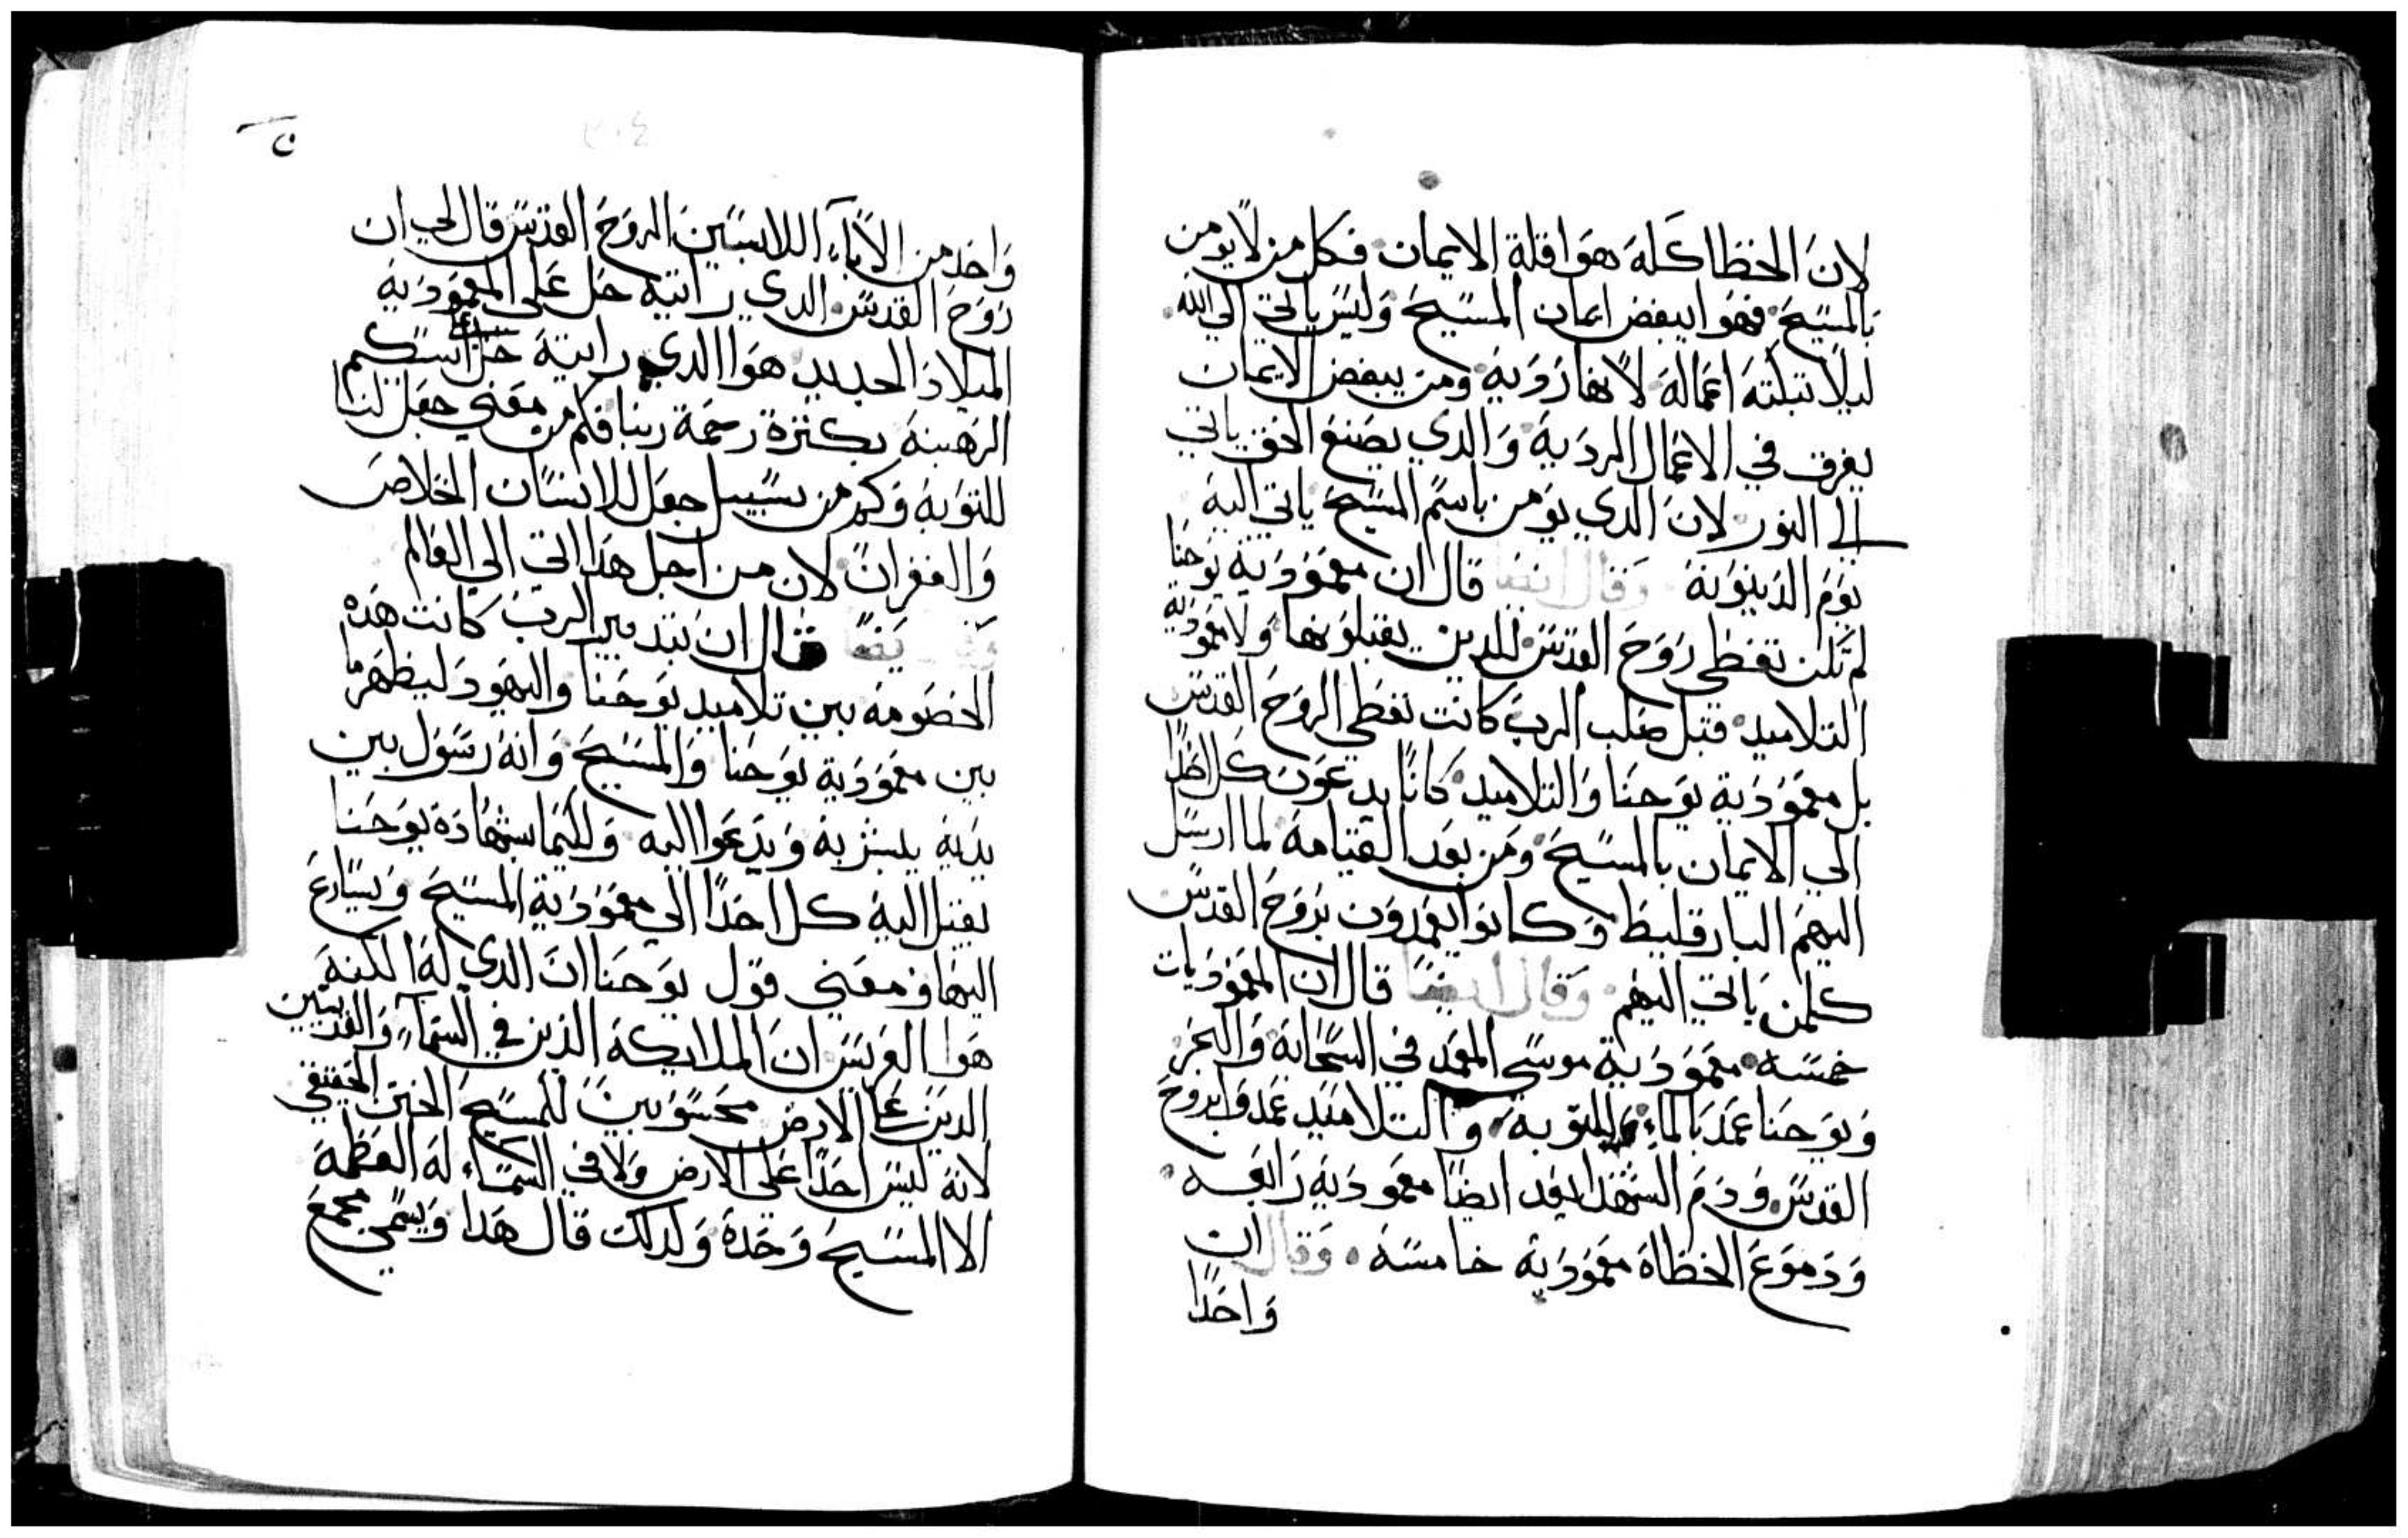 لان الخطا كله هوا قلة الايمان فكل من لا يومن
بالمسيح فهوا يبغض ايمان المسيح وليس ياتي الي الله
ليلا تبكته اعماله لانها رديه ومن يبغض الايمان
يغرق في الاعمال الرديه والدي يصنع الحق ياتي
الي النور لان الدي يومن باسم المسيح ياتي اليه
يوم الدينونة وقال ايضا قال ان معمودية يوحنا
لم تكن تعطي روح القدس للدين يقبلونها ولا معمودية
التلاميد قبل صلب الرب كانت تعطي الروح القدس
بل معمودية يوحنا والتلاميد كانا يدعون كل احدا
الي الايمان بالمسيح ومن بعد القيامة لما ارسل
اليهم البارقليط وكانوا يعمدون بروح القدس
كلمن ياتي اليهم وقال ايضا قال ان المعموديات
خمسه معمودية موسي المعمد في السحابة والبحر
ويوحنا عمد بالماء للتوبه والتلاميد عمدوا بروح
القدس ودم الشهدا يعد ايضا معمودية رابعه
ودموع الخطاة معمودية خامسه وقال ان
واحدا
ن
٢٠٤
واحد من الاباء اللابسين الروح القدس قال لي ان
روح القدس الدي رايته حل علي المعمودية
الميلاد الجديد هوا الدي رايته حل علي اسكيم
الرهبنة بكثرة رحمة ربنا فكم من معني جعل لنا
للتوبة وكم من سبيل جعل للانسان الخلاص
والغفران لان من اجل هدا اتي الي العالم
وقال ايضا قال ان بتدبير الرب كانت هده
الخصومه بين تلاميد يوحنا واليهود ليظهر ما
بين معمودية يوحنا والمسيح وانه رسول بين
يديه يبشر به ويدعوا اليه ولكيما بشهادة يوحنا
يقبل اليه كل احدا الي معمودية المسيح ويسارع
اليها ومعني قول يوحنا ان الدي له الكنة
هوا العريس ان الملايكة الدين في السماء والقديسين
الدين علي الارض محسوبين للمسيح الختن الحقيقي
لانه ليس احدا علي الارض ولا في السماء له العظمة
الا المسيح وحدة ولدلك قال هدا ويسمي مجمع